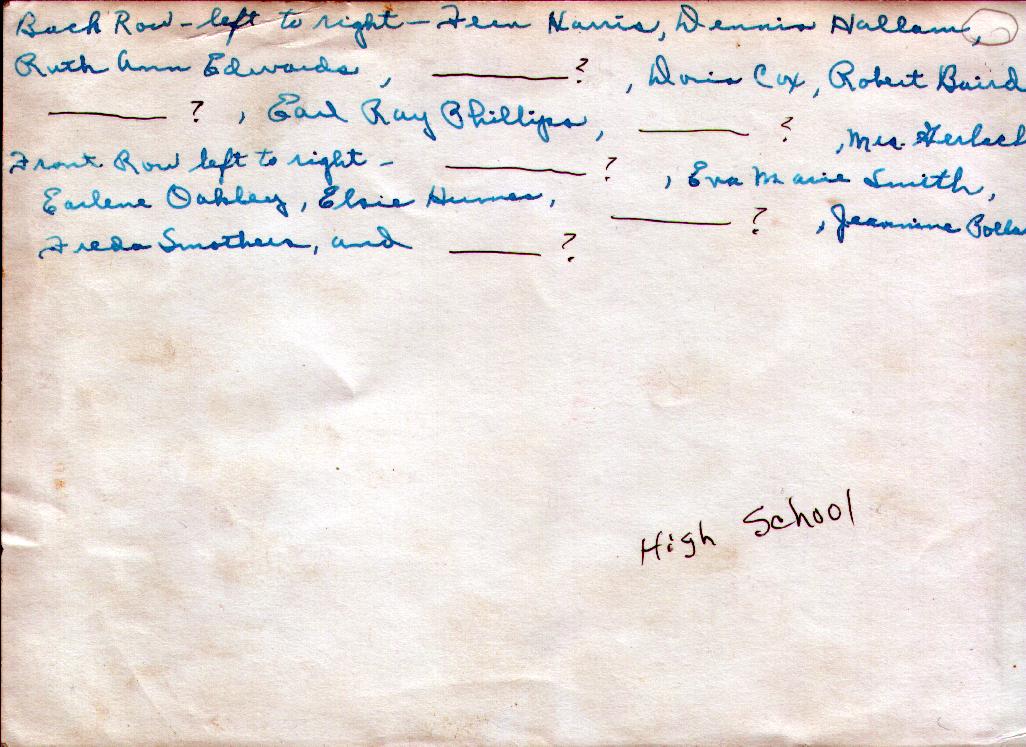 Back Row - left to right - Fern Harris, Dennis Hallam,
Ruth Ann Edwards, ______?, Doris Cox, Robert Baird
______?, Earl Ray Phillips, ______?, Mrs. Gerlach
Front Row left to right - ______?, Eva Marie Smith,
Earlene Oakley, Elsie Humes, ______?, Jeannine
Freda Smothers, and ______?
High School